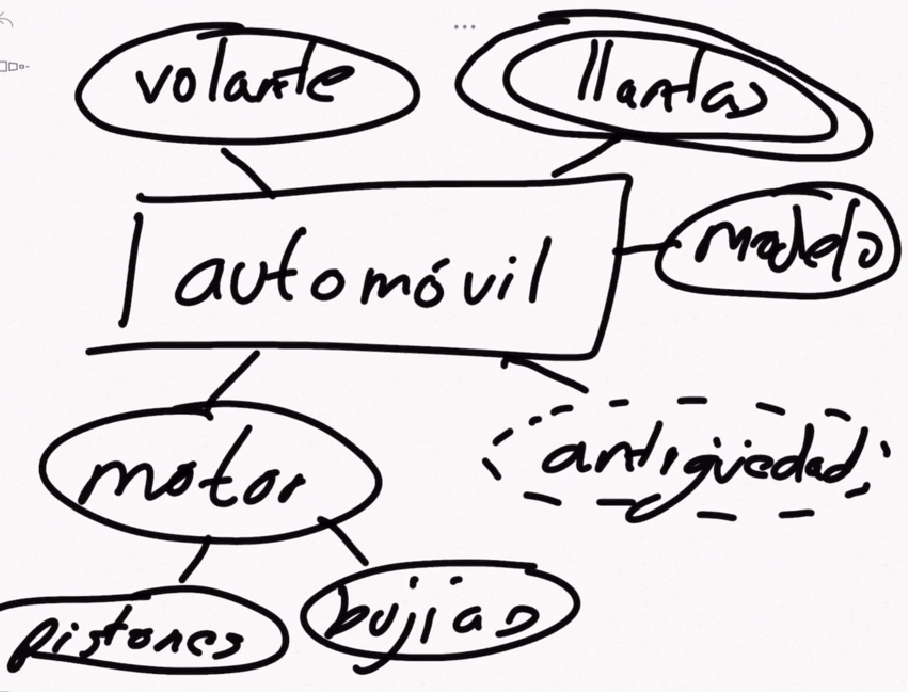 volante
llantas
automóvil
modelo
motor
antigüedad
pistones
bujias